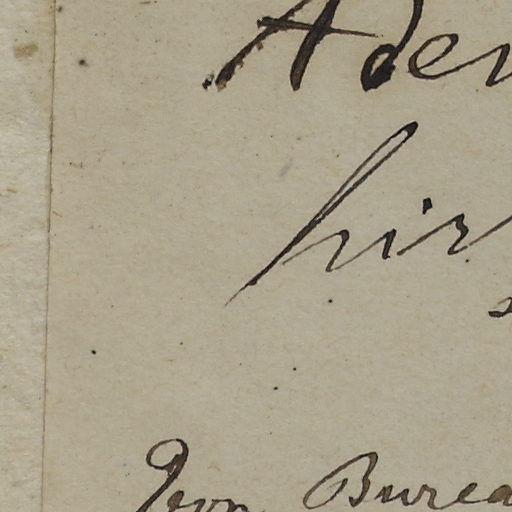 Aden
hir
Von Burea